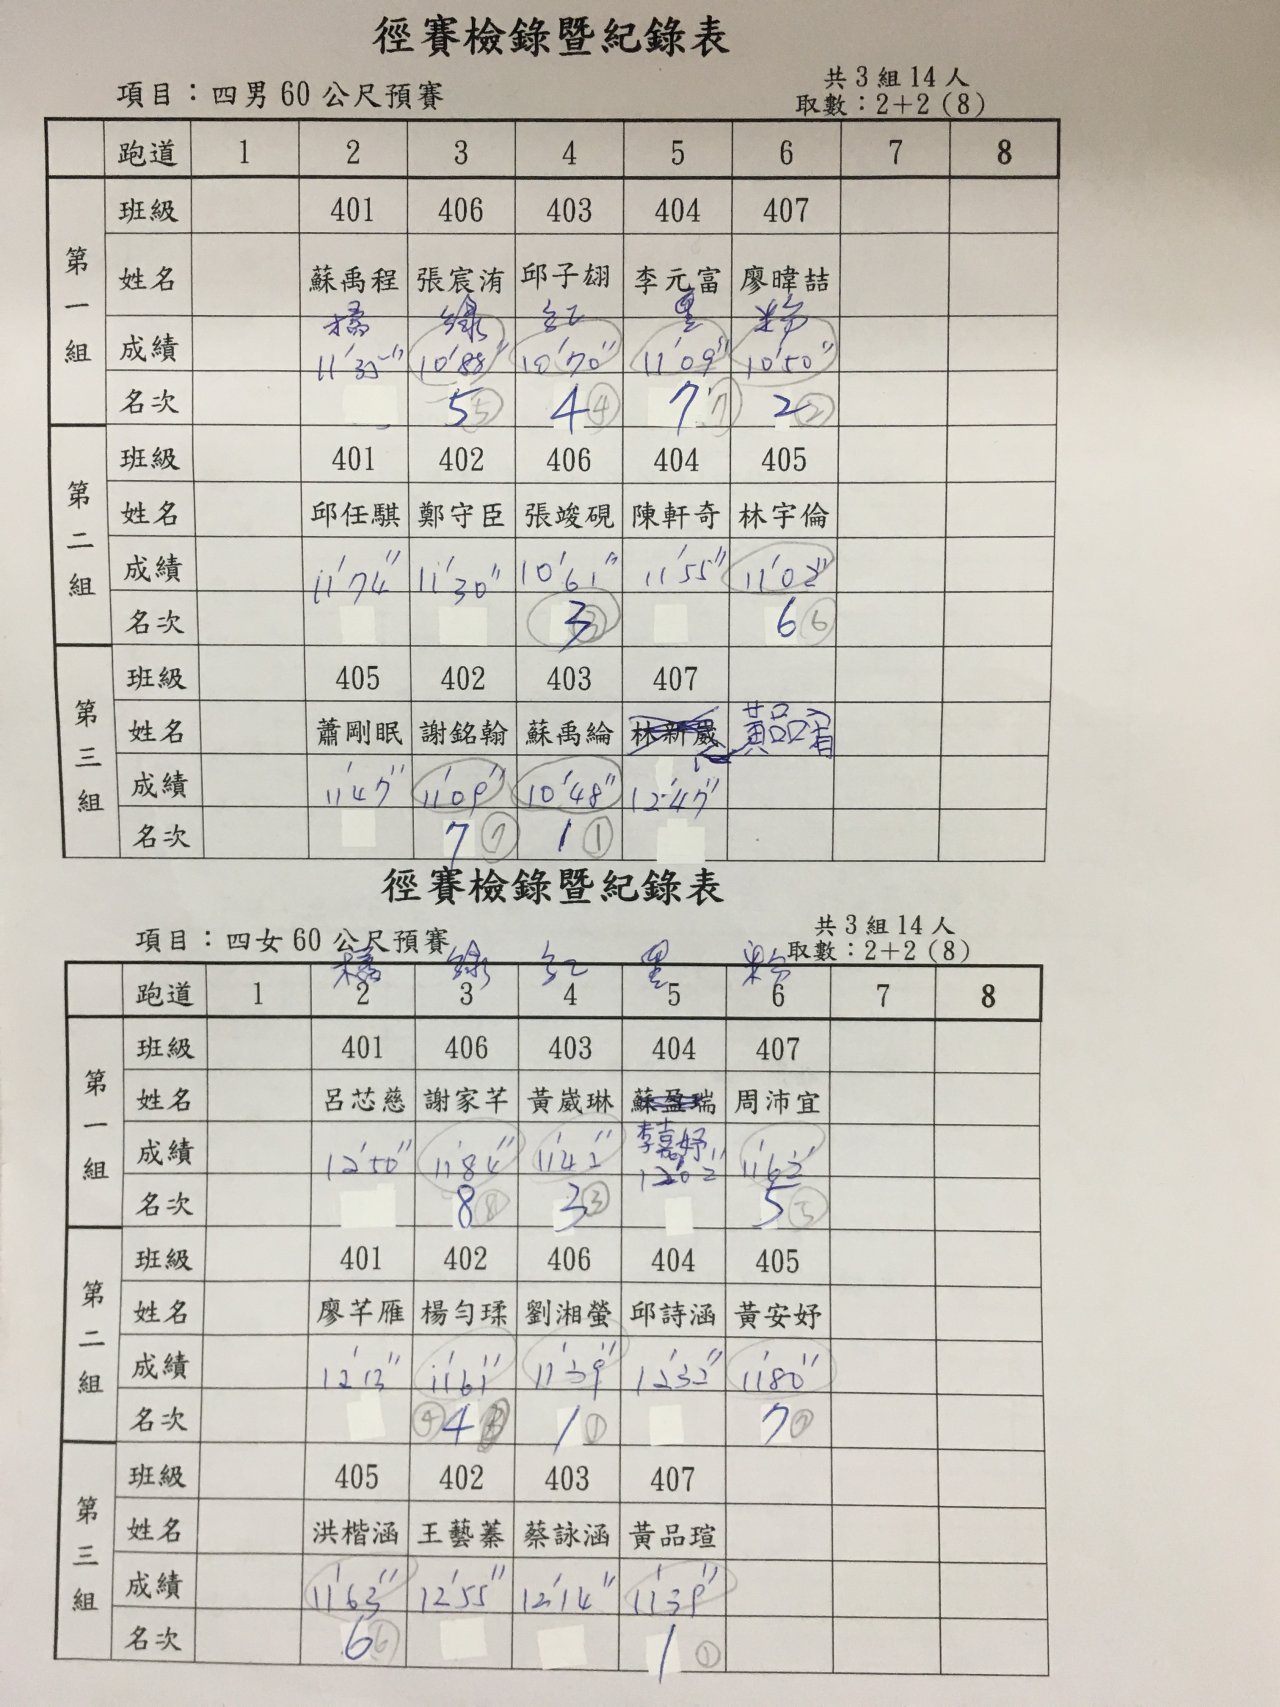 徑賽檢錄暨紀錄表
項目：四男60公尺預賽
共3組14人
取數：2+2（8）
跑道 1 2 3 4 5 6 7 8
第一組
班級 401 406 403 404 407
姓名 蘇禹程 張宸洧 邱子翃 李元富 廖暐喆
橘 綠 紅 黑 粉
成績 11'35" 10'88" 10'70" 11'09" 10'50"
名次 5 ⑤ 4 ④ 7 ⑦ 2 ②
第二組
班級 401 402 406 404 405
姓名 邱任騏 鄭守臣 張竣硯 陳軒奇 林宇倫
成績 11'74" 11'30" 10'61" 11'55" 11'02"
名次 3 ③ 6 ⑥
第三組
班級 405 402 403 407
姓名 蕭剛眠 謝銘翰 蘇禹綸 林新崴
成績 11'47" 11'09" 10'48" 12'47"
名次 7 ⑦ 1 ①
徑賽檢錄暨紀錄表
項目：四女60公尺預賽
共3組14人
取數：2+2（8）
橘 綠 紅 黑 粉
跑道 1 2 3 4 5 6 7 8
第一組
班級 401 406 403 404 407
姓名 呂芯慈 謝家芊 黃崴琳 蘇盈瑞 周沛宜
李嘉妤
成績 12'50" 11'84" 11'42" 12'02" 11'62"
名次 8 ⑧ 3 ③ 5 ⑤
第二組
班級 401 402 406 404 405
姓名 廖芊雁 楊勻瑈 劉湘螢 邱詩涵 黃安妤
成績 12'13" 11'61" 11'39" 12'32" 11'80"
名次 ④ 4 1 ① 7 ⑦
第三組
班級 405 402 403 407
姓名 洪楷涵 王藝蓁 蔡詠涵 黃品瑄
成績 11'63" 12'55" 12'14" 11'39"
名次 6 ⑥ 1 ①